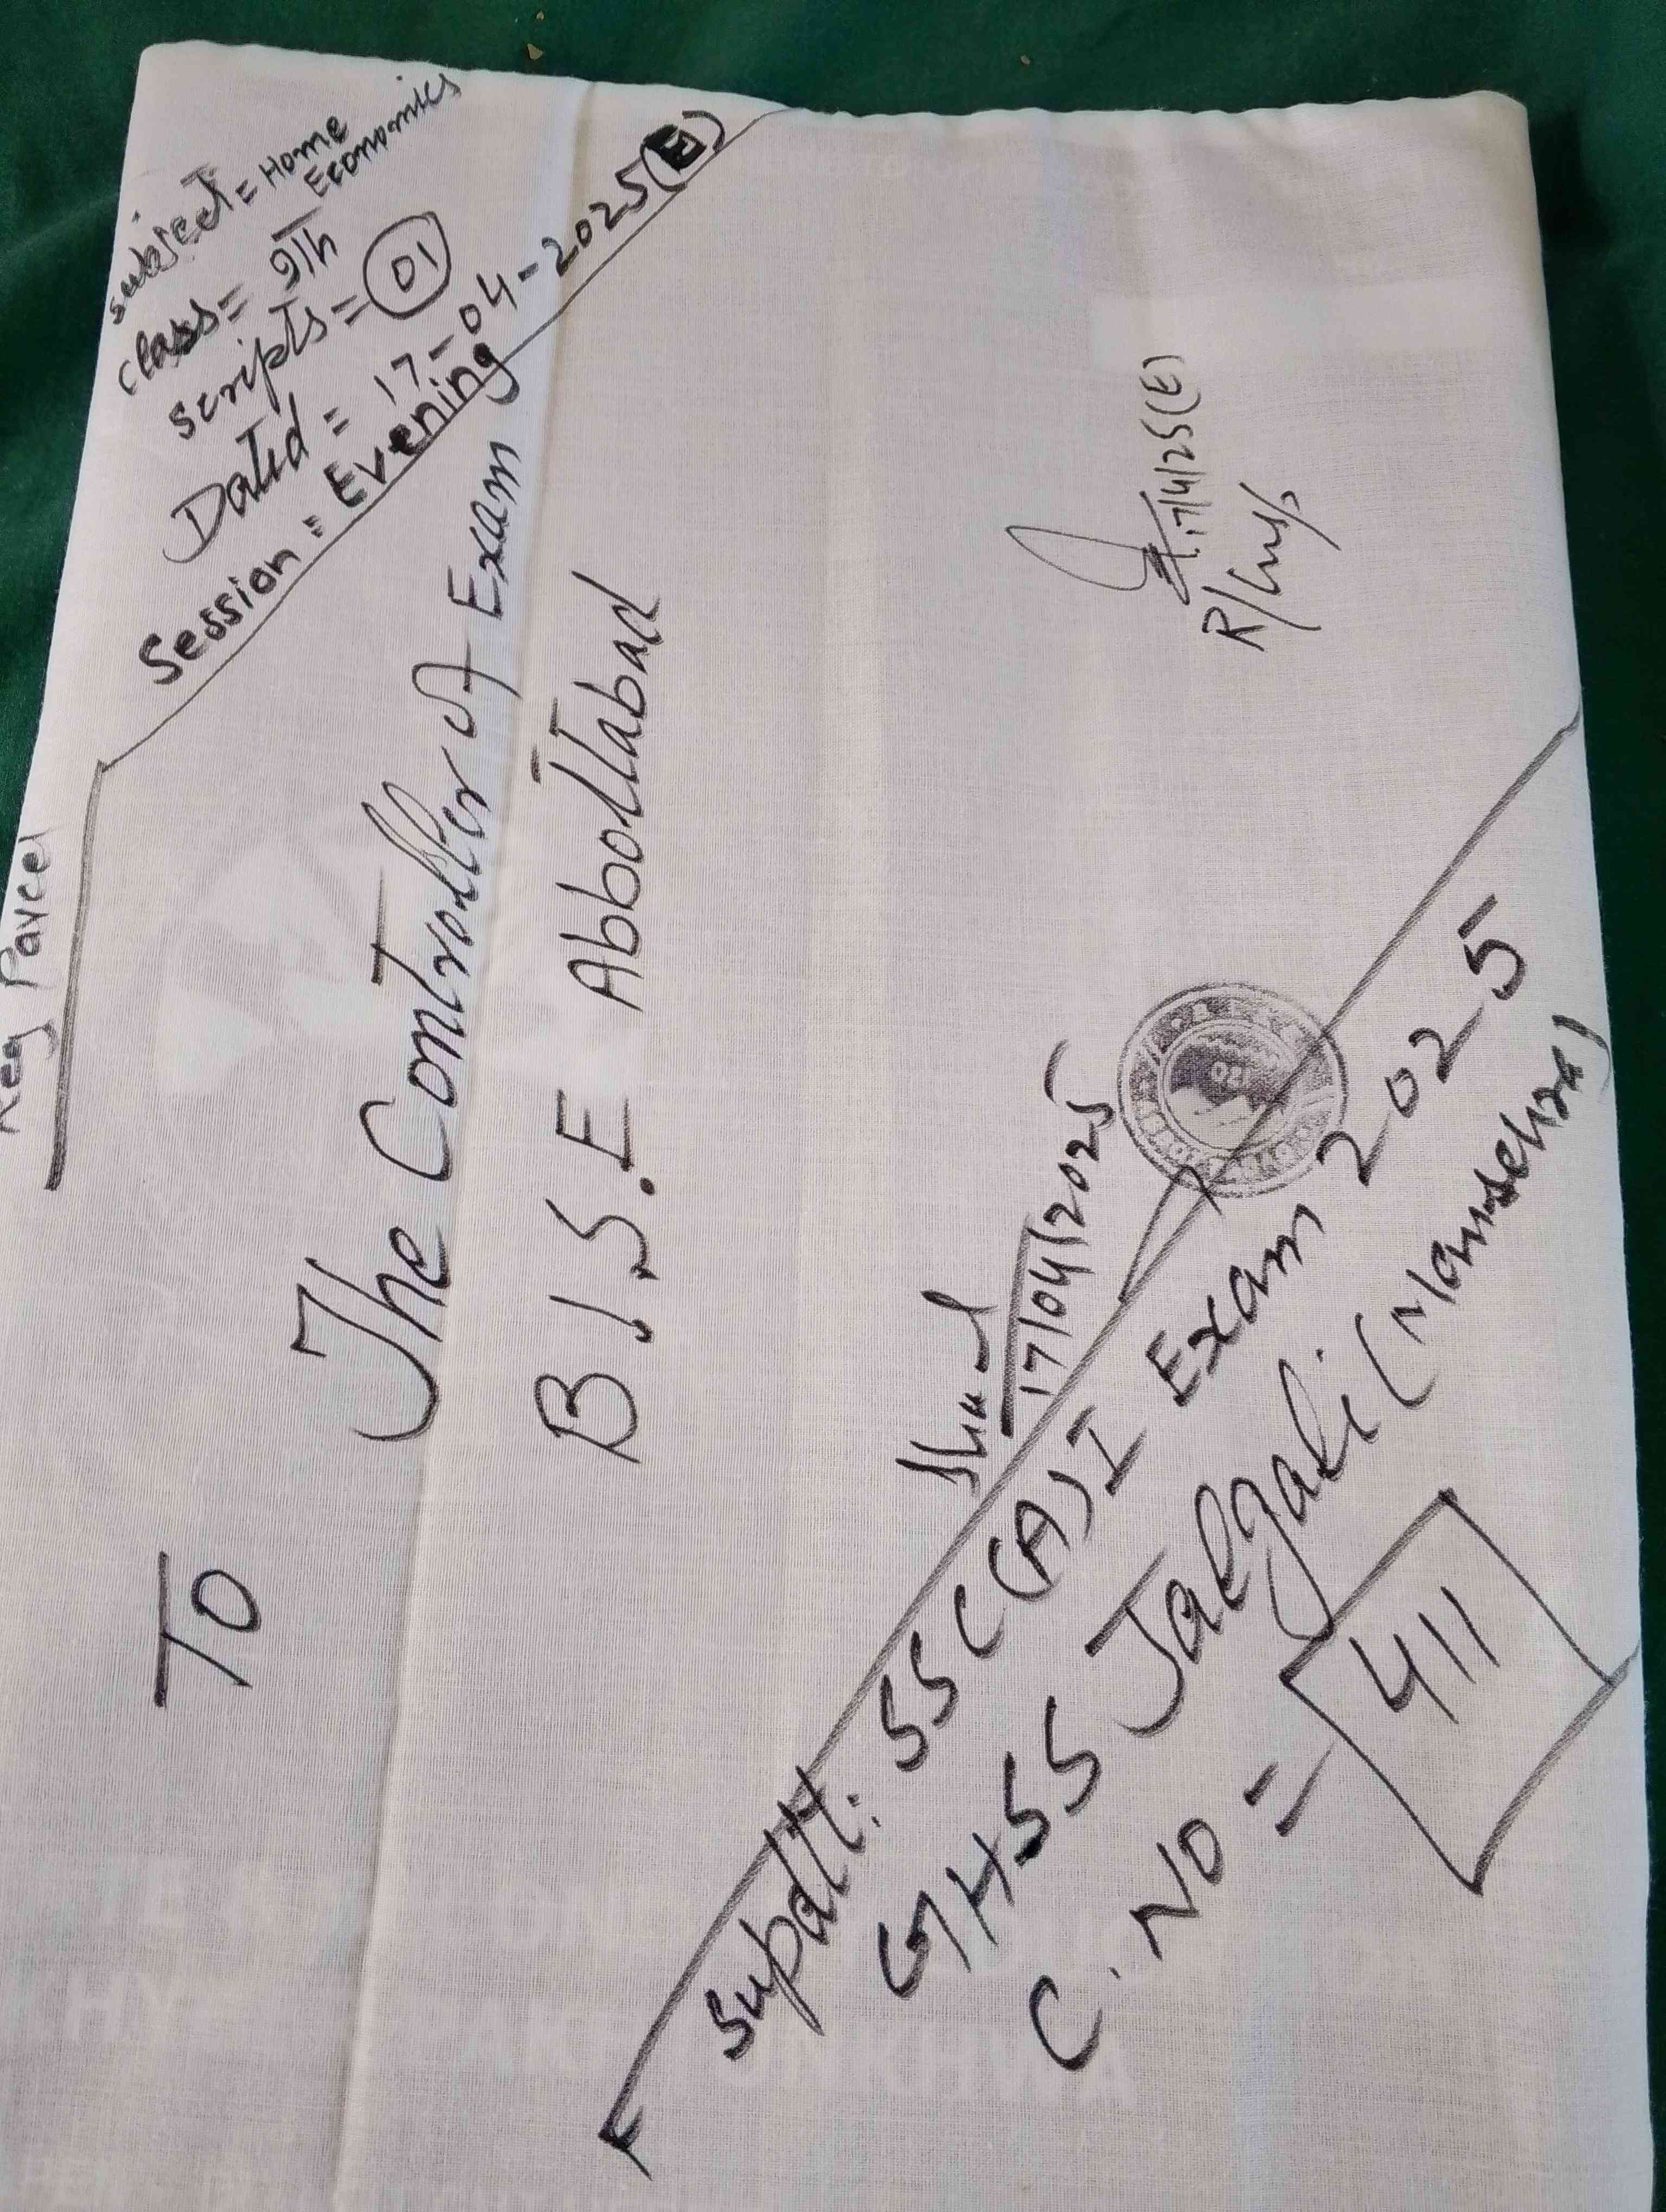 Reg Parcel
Subject = Home
Economics
Class = 9Th
Scripts = 01
Dated = 17-04-2025(E)
Session = Evening
To
The Controller of Exam
B.I.S.E Abbottabad
17/4/25(E)
17/04/2025
Supdtt: SSC(A)I Exam 2025
GHSS Jalgali (Mansehra)
C.No = 411